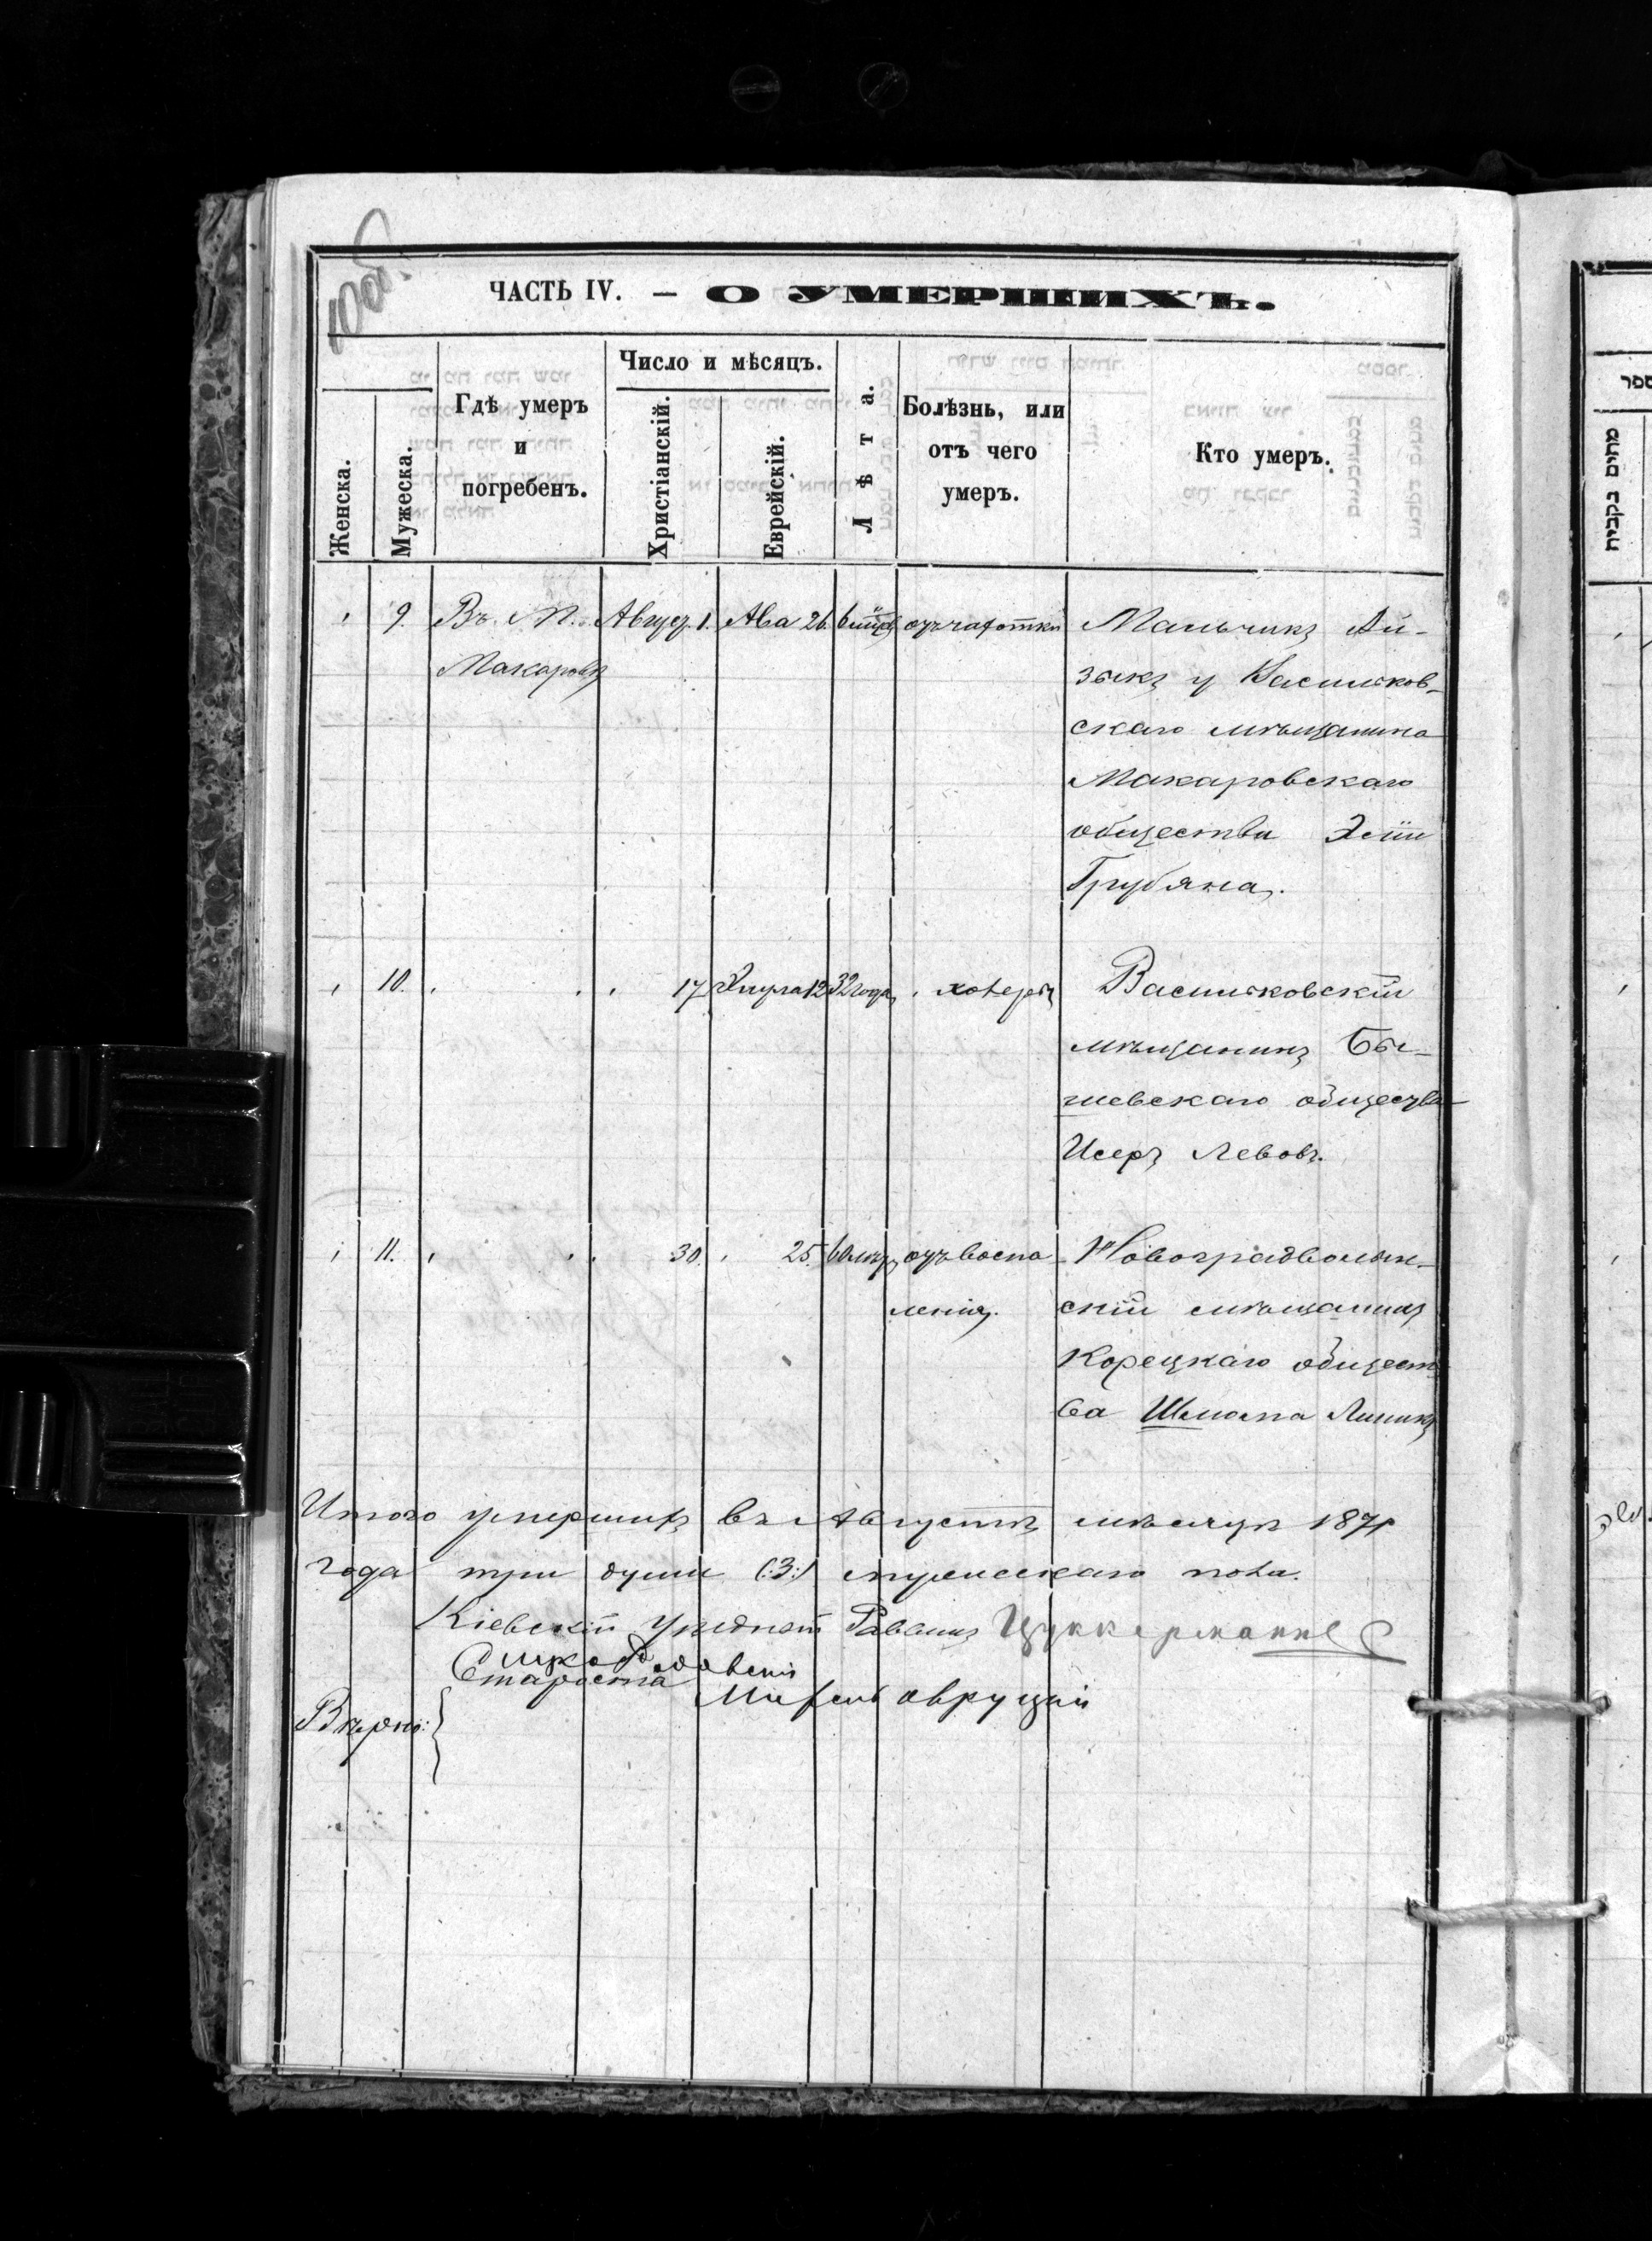 10 об.
ЧАСТЬ IV. — О УМЕРШИХЪ.
Женска.
Мужеска.
Гдѣ умеръ
и
погребенъ.
Число и мѣсяцъ.
Христіанскій.
Еврейскій.
Лѣта.
Болѣзнь, или
отъ чего
умеръ.
Кто умеръ.
9. Въ М. Август. 1. Ава 26. отъ чахотки Мальчикъ Ай-
Макаровѣ зыкъ у Васильков-
скаго мѣщанина
Макаровскаго
общества Эли
Грубяна.
10. 17 Элула 12 32 года, холеры Васильковскій
мѣщанинъ Бы-
шевскаго общества
Исеръ Левовъ.
11. 30. 25. 60 лѣтъ отъ воспа Новоградволын-
ленія. скій мѣщанинъ
Корецкаго общест
ва Шлиома Линикъ
Итого умершихъ въ Августѣ мѣсяцѣ 1871
года три души (:3:) мужескаго пола.
Кіевскій уѣздной Раввинъ Цуккерманъ
Староста
овруцкий
Вѣрно:
ספר